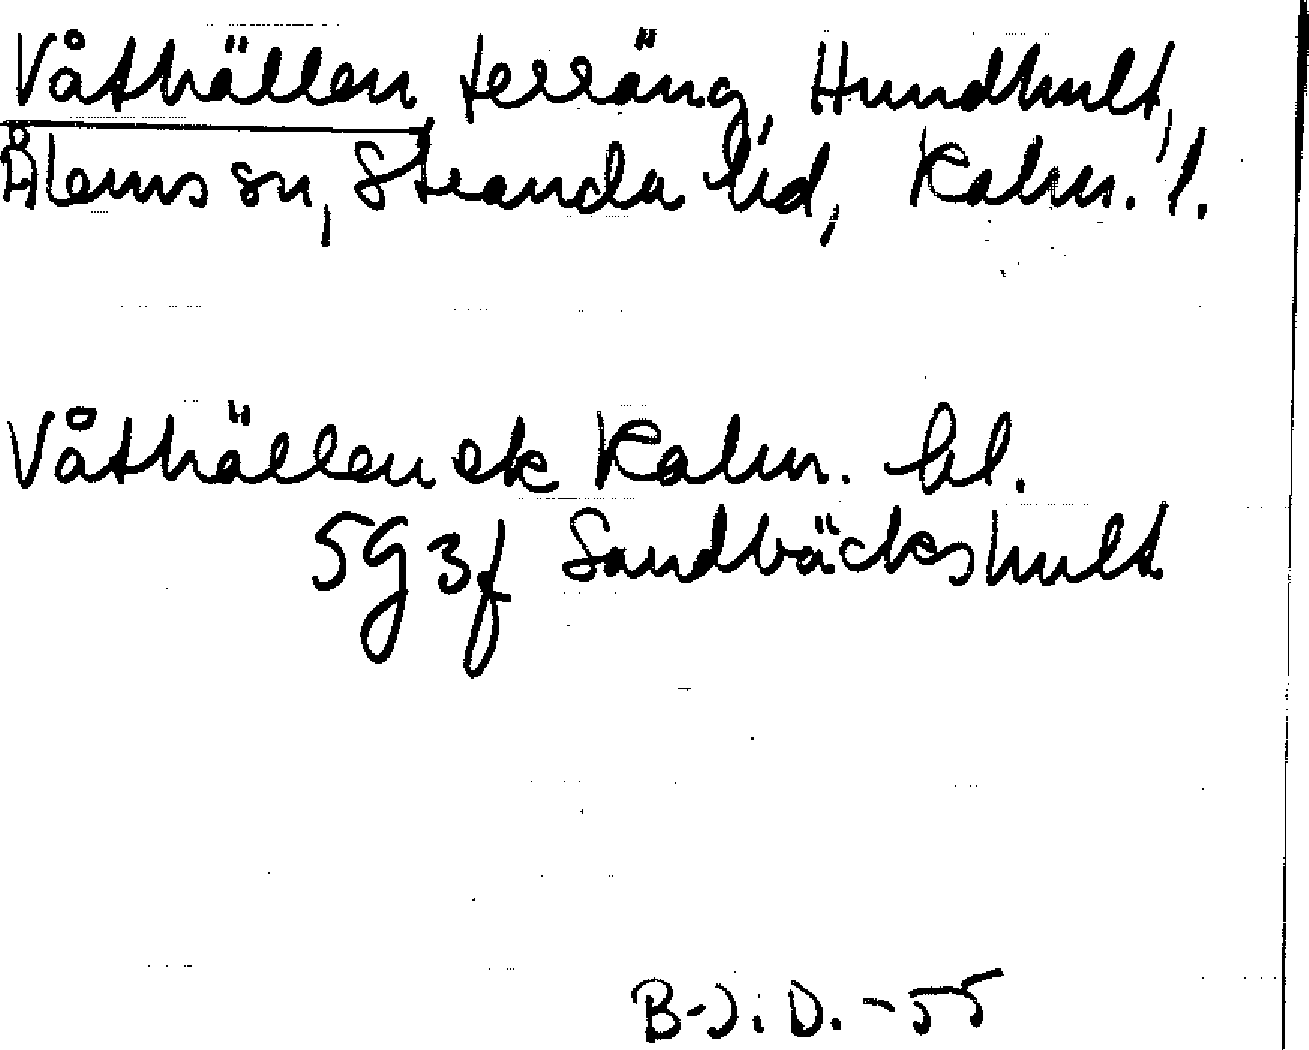 Våthällen terräng, Hundhult,
Ålems sn, Stranda hd, Kalm. l.
Våthällen ek Kalm. bl.
5G3f Sandbäckshult
B-J. i D. -55